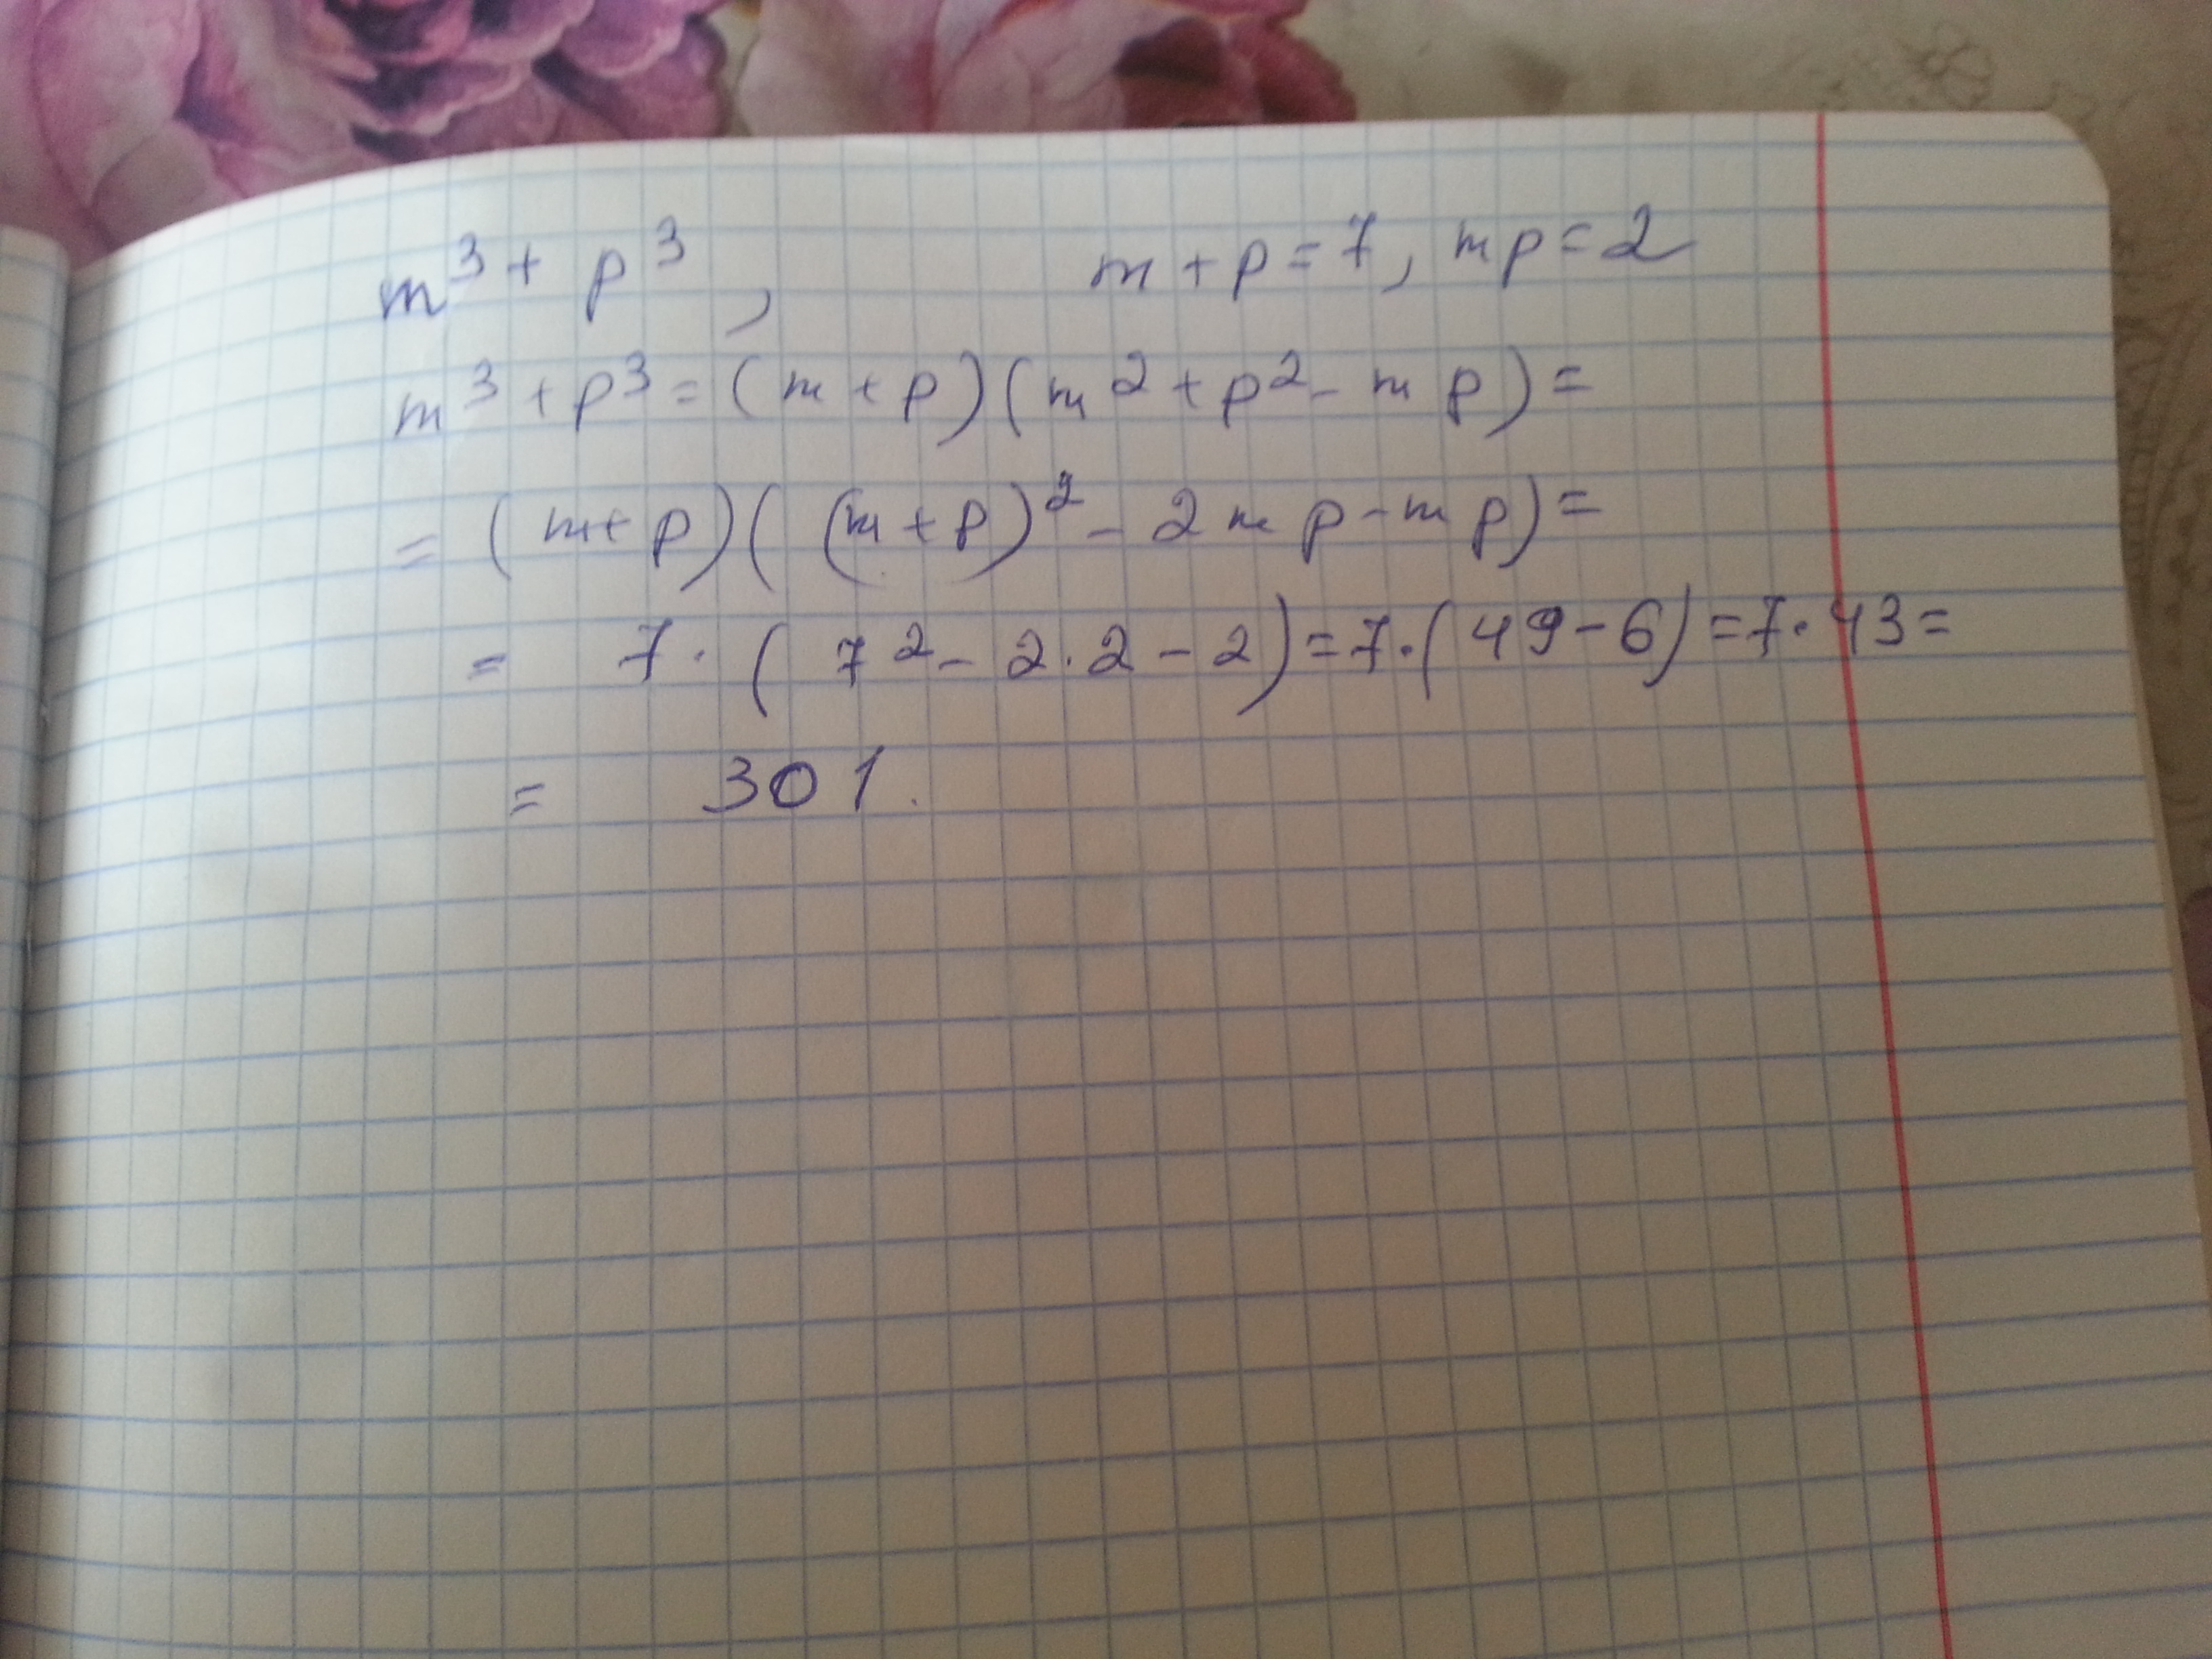 m³ + p³, m + p = 7, mp = 2
m³ + p³ = (m + p)(m² + p² - mp) =
= (m + p)((m + p)² - 2mp - mp) =
= 7 · (7² - 2 · 2 - 2) = 7 · (49 - 6) = 7 · 43 =
= 301.